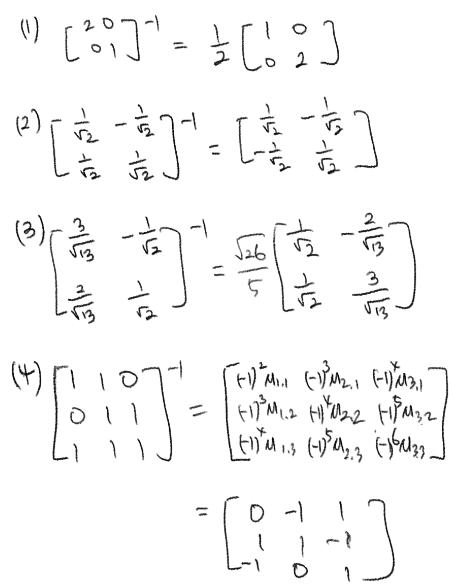 (1) [2 0; 0 1]^-1 = 1/2 [1 0; 0 2]
(2) [1/√2 -1/√2; 1/√2 1/√2]^-1 = [1/√2 -1/√2; -1/√2 1/√2]
(3) [3/√13 -1/√2; 2/√13 1/√2]^-1 = √26/5 [1/√2 -2/√13; 1/√2 3/√13]
(4) [1 1 0; 0 1 1; 1 1 1]^-1 = [(-1)^2 M1,1 (-1)^3 M2,1 (-1)^4 M3,1; (-1)^3 M1,2 (-1)^4 M2,2 (-1)^5 M3,2; (-1)^4 M1,3 (-1)^5 M2,3 (-1)^6 M3,3]
= [0 -1 1; 1 1 -1; -1 0 1]